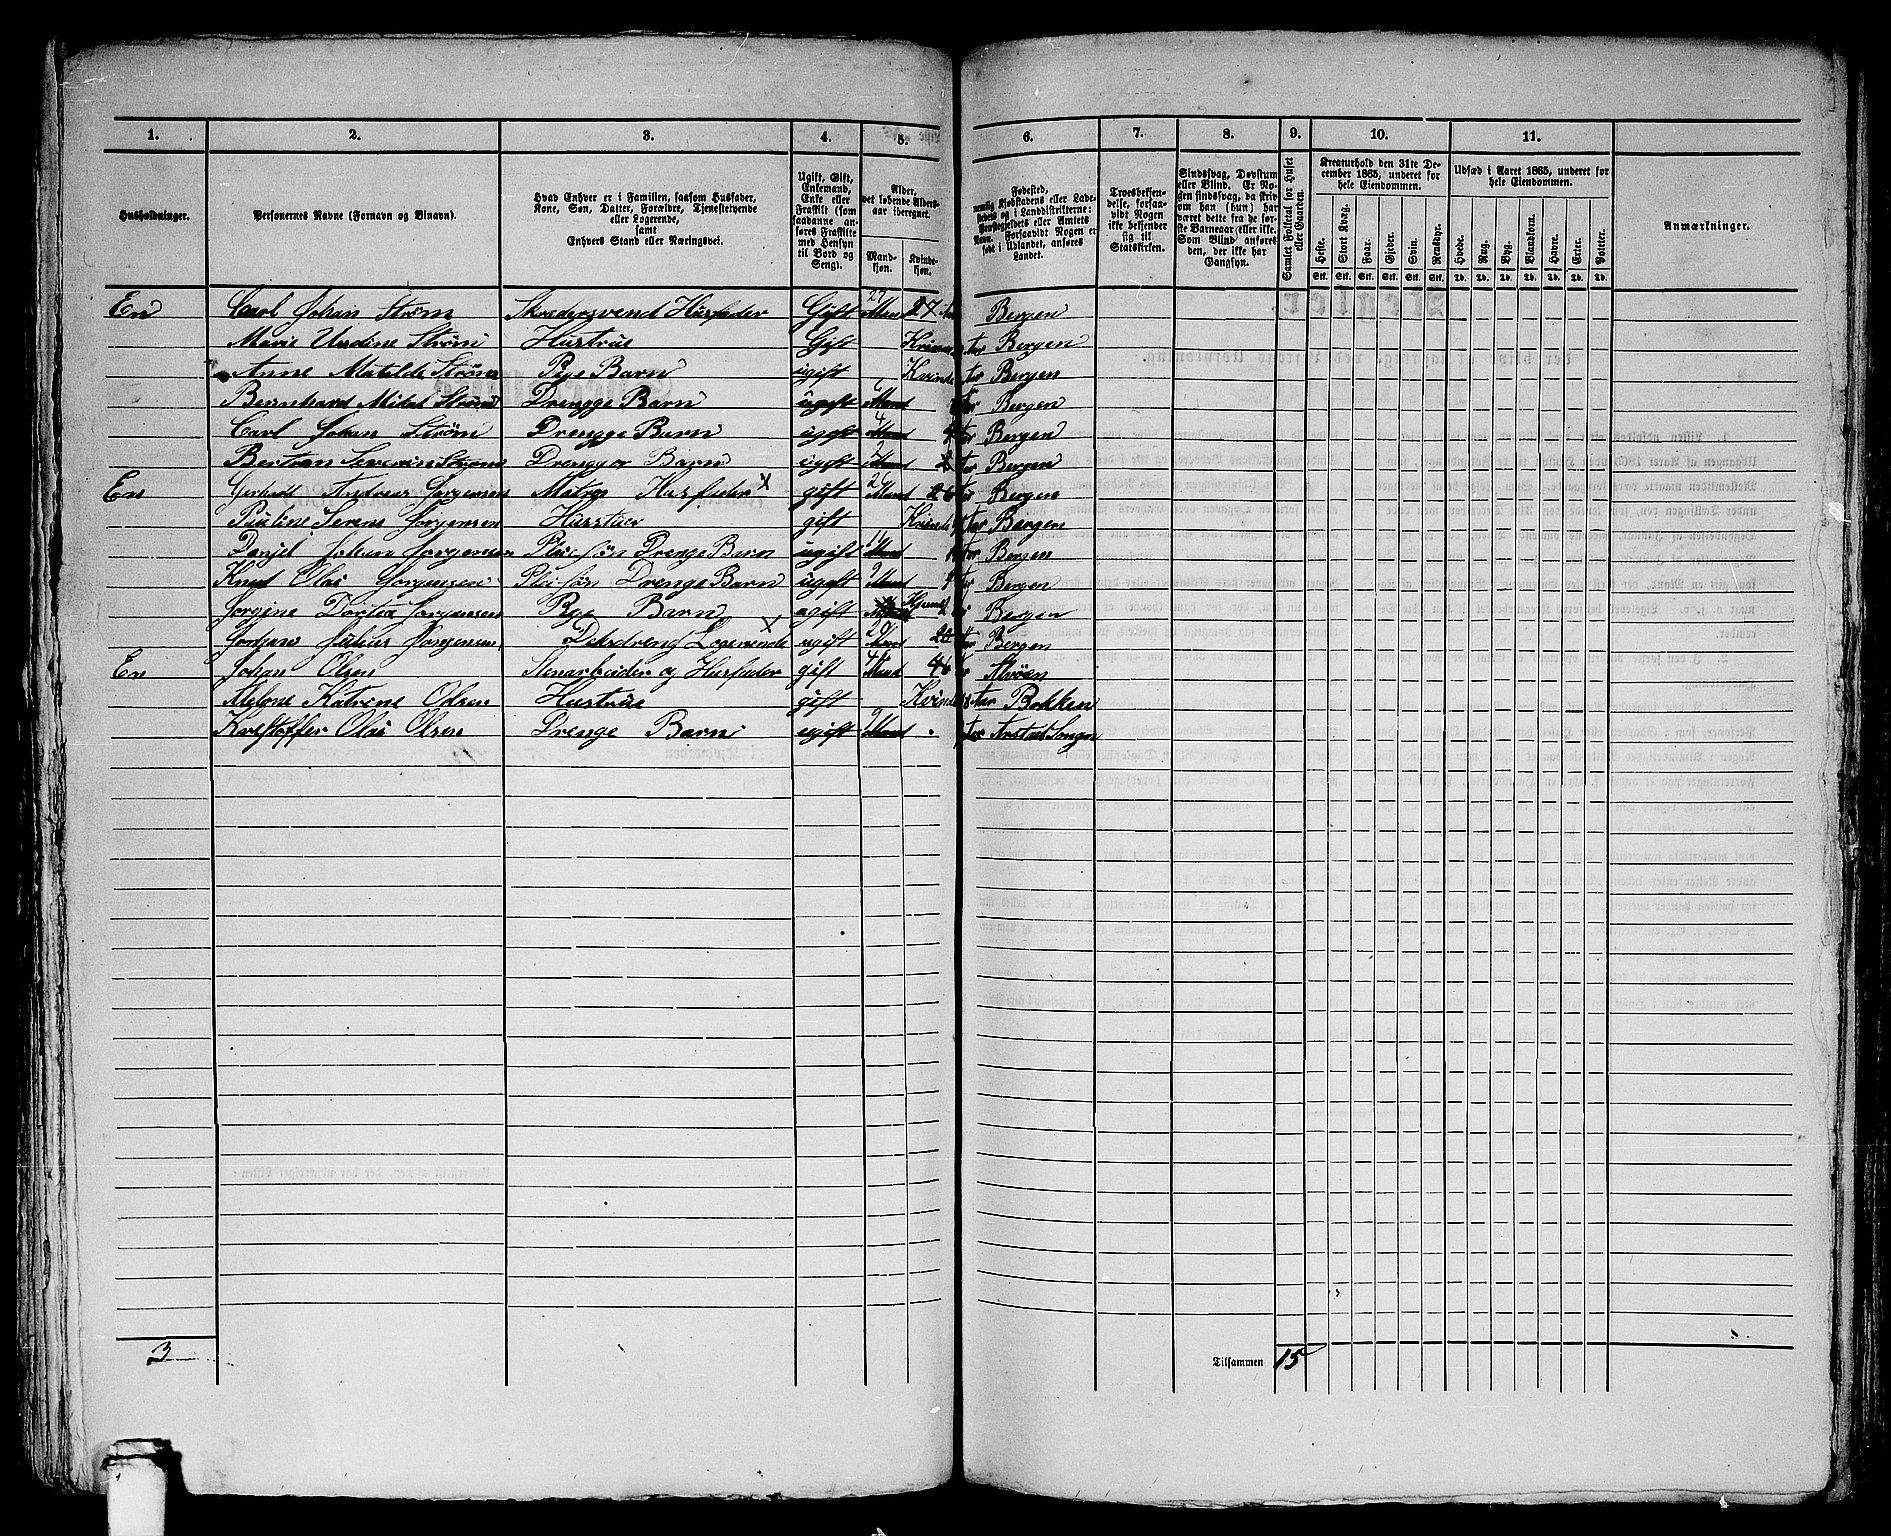 1. 2. 3. 4. 5. 6. 7. 8. 9. 10. 11.
Husholdninger.
Personernes Navne (Fornavn og Binavn).
Hvad Enhver er i Familien, saasom Husfader,
Kone, Søn, Datter, Forældre, Tjenestetyende
eller Logerende,
samt
Enhvers Stand eller Næringsvei.
Ugift, Gift,
Enkemand,
Enke eller
Fraskilt (som
saadanne an-
føres Fraskilte
med Hensyn
til Bord og
Seng).
Alder,
det løbende Alders-
aar iberegnet.
Mand-
kjøn.
Kvinde-
kjøn.
Fødested,
nemlig Kjøbstadens eller Lade-
stedets og i Landdistrikterne:
Præstegjeldets eller Amtets
Navn. Forsaavidt Nogen er
født i Udlandet, anføres
Landet.
Troesbekjen-
delse, forsaa-
vidt Nogen
ikke bekjender
sig til
Statskirken.
Sindssvag, Døvstum
eller Blind. Er No-
gen sindssvag, da skriv
om han (hun) har
været dette fra de før-
ste Barneaar eller ikke.
Som Blind anføres
den, der ikke har
Gangsyn.
Samlet Folketal for Huset
eller Gaarden.
Kreaturhold den 31te De-
cember 1865, underet for
hele Eiendommen.
Heste. Stort Kvæg. Faar. Gjeder. Svin. Rensdyr.
Stk. Stk. Stk. Stk. Stk. Stk.
Udsæd i Aaret 1865, underet for
hele Eiendommen.
Hvede. Rug. Byg. Blandkorn. Havre. Erter. Poteter.
Td. Td. Td. Td. Td. Td. Td.
Anmærkninger.
En Carl Johan Strøm Skredersvend Husfader Gift 27 Mand 27 Bergen
Marie Undine Strøm Hustrue Gift Kvinde Bergen
Anne Matilde Strøm Pige Barn ugift Kvinde Bergen
Bernhard Mikal Strøm Drengge Barn ugift 6 Mand Bergen
Carl Johan Strøm Drengge Barn ugift 4 Mand Bergen
Bertran Severin Strøm Drengge Barn ugift 2 Mand 2 Bergen
En Gerhadt Andreas Jørgensen Matros Husfader x gift 26 Mand 26 Bergen
Pauline Serene Jørgensen Hustrue gift Kvinde Bergen
Danjel Johan Jørgensen Pleiesøn Drenge Barn ugift Mand Bergen
Knud Olai Jørgensen Pleiesøn Drenge Barn ugift 9 Mand Bergen
Jørgine Dortea Jørgensen Pige Barn ugift Kvinde Bergen
Julius Jørgensen Logerende x ugift 20 Mand 20 Bergen
En Johan Olsen Stenarbeider og Husfader gift 46 Mand 46 Alvøen
Katrine Olsen Hustrue gift Kvinde Bokken
Kristoffer Olai Olsen Drenge Barn ugift 2 Mand
3
Tilsammen 15